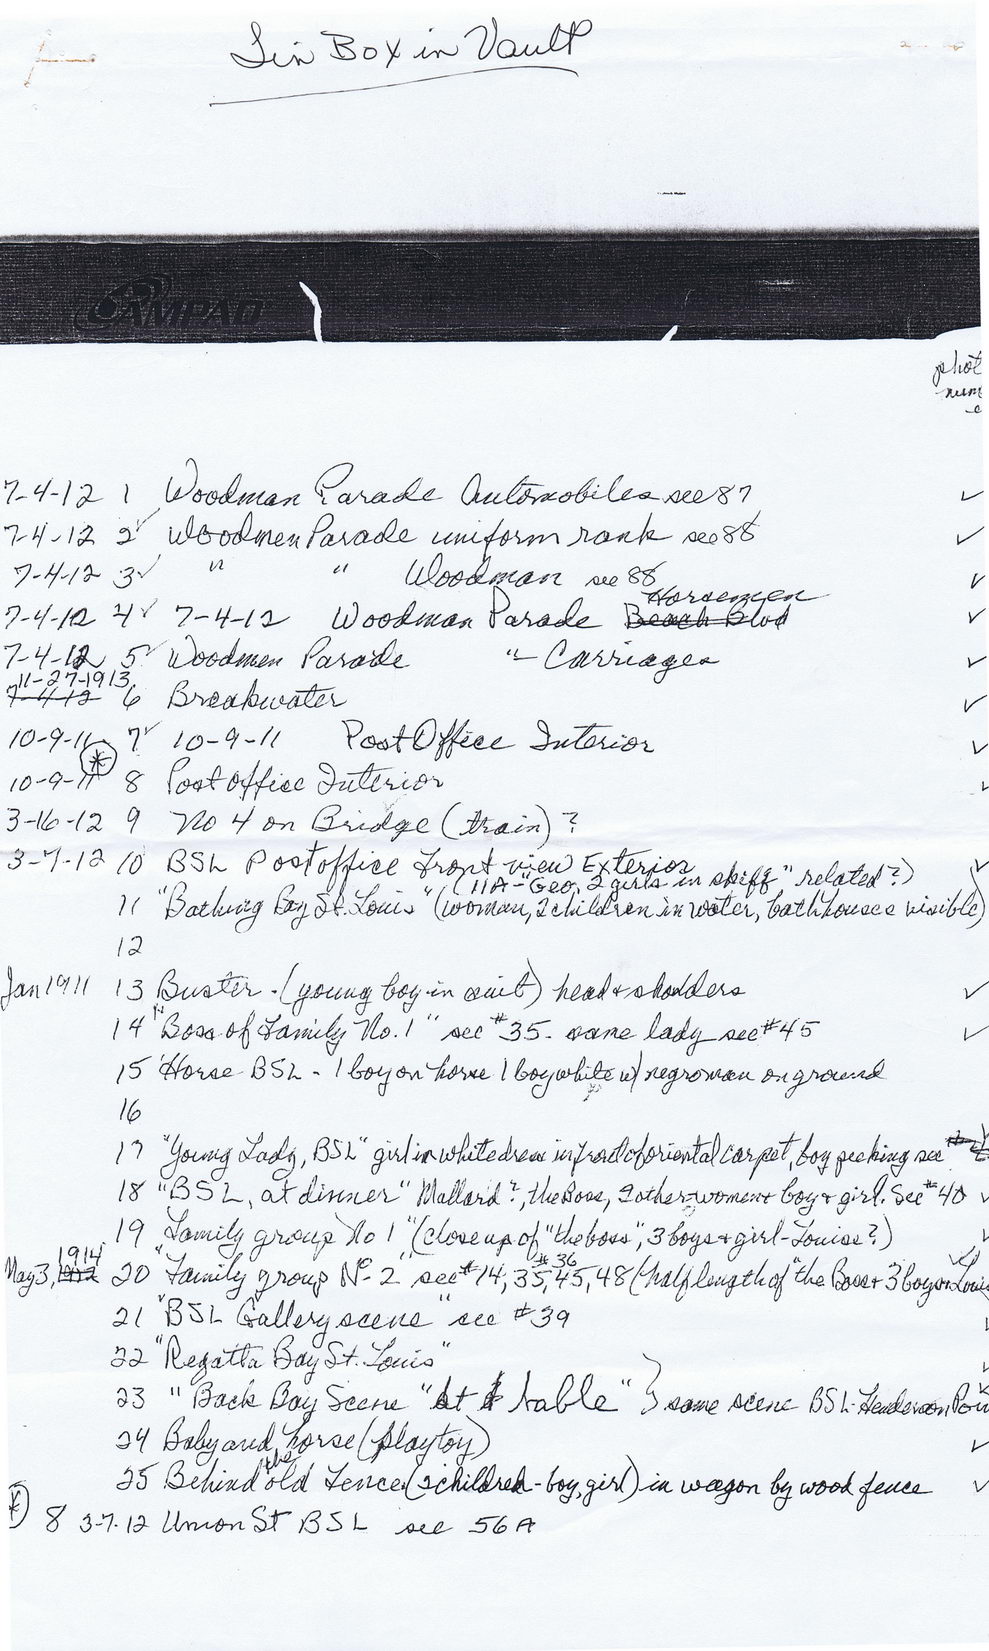 Tin Box in Vault
AMPAD
phot
num
7-4-12 1 Woodman Parade Automobiles see 87
7-4-12 2 ✓ Woodmen Parade uniform rank see 88 ✓
7-4-12 3 ✓ " " Woodman see 88 ✓
Horsemen
7-4-12 4 ✓ 7-4-12 Woodman Parade Beach Blvd ✓
7-4-12 5 ✓ Woodmen Parade " - Carriages ✓
11-27-1913
7-4-12 6 Breakwater ✓
10-9-11 7 ✓ 10-9-11 Post Office Interior ✓
10-9-11 * 8 Post office Interior ✓
3-16-12 9 No 4 on Bridge (train) ?
3-7-12 10 BSL Post office Front view Exterior ✓
(11A-"Geo, 2 girls in skiff" related?)
11 "Bathing Bay St. Louis" (woman, 2 children in water, bathhouses visible)
12
Jan 1911 13 Buster - (young boy in suit) head & shoulders ✓
14 "Boss of Family No. 1" see #35 - same lady see #45 ✓
15 "Horse BSL - 1 boy on horse 1 boy white w/ negro man on ground
16
17 "Young Lady, BSL" girl in white dress in front of oriental carpet, boy peeking see
18 "BSL, at dinner" Mallard?, the Boss, 2 other women & boy & girl. See #40 ✓
19 Family group No 1" (close up of "the boss", 3 boys & girl - Louise?)
1914
# 36
May 3, 1912 20 "Family group No- 2" see #14, 35, 45, 48 (half length of "the Boss & 3 boys & Louis
21 "BSL Gallery scene" see #39
22 "Regatta Bay St. Louis" ✓
23 " Back Bay Scene "at table" } same scene BSL- Henderson Poin
24 Baby and horse (play toy) ✓
the
25 Behind old Fence (2 children - boy, girl) in wagon by wood fence ✓
* 8 3-7-12 Union St BSL see 56A